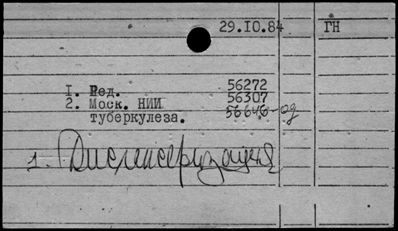 29.10.84 ГН
1. Ред. 56272
2. Моск. НИИ 56307
туберкулеза. 56646-од
1. Диспансеризация